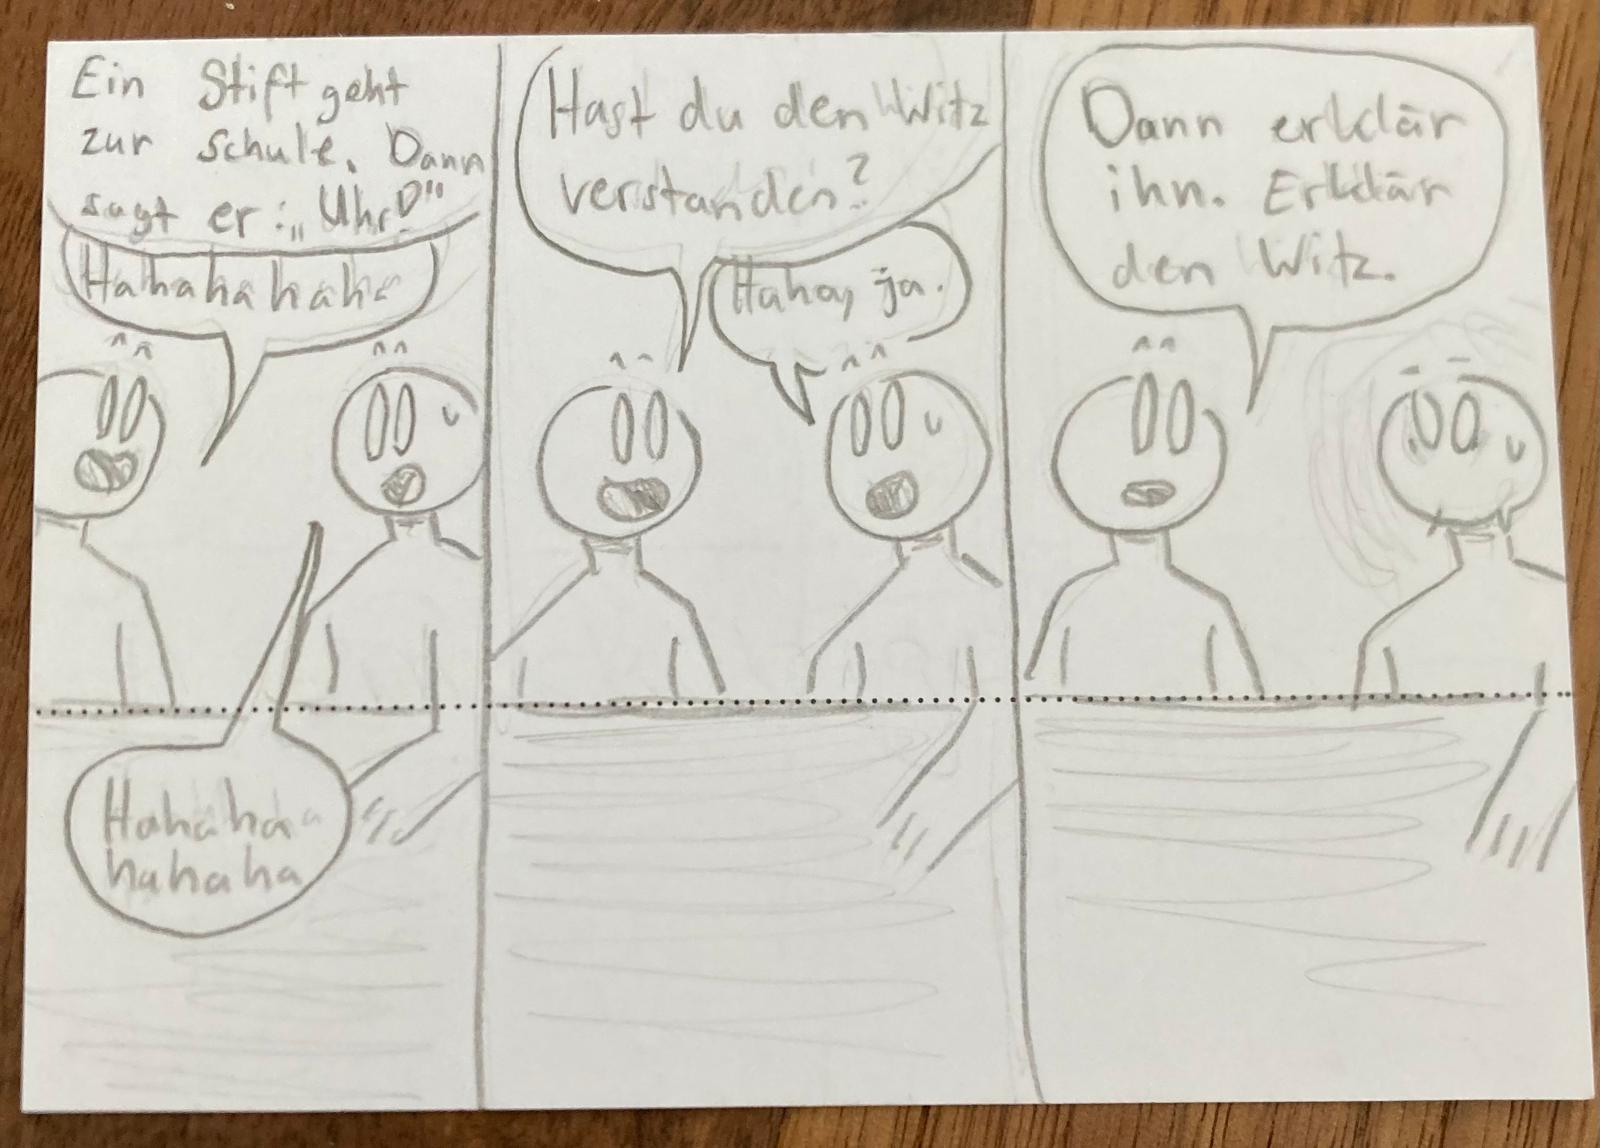 Ein Stift geht
zur Schule. Dann
sagt er: „Uhr!"
Hahahahaha
Hahaha
hahaha
Hast du den Witz
verstanden?
Haha, ja.
Dann erklär
ihn. Erklär
den Witz.